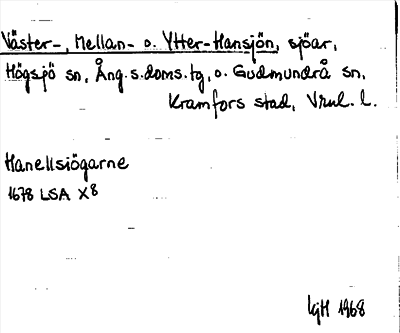 Väster-, Mellan- o. Ytter-Hansjön, sjöar,
Högsjö sn, Ång. s. doms. tg, o. Gudmundrå sn,
Kramfors stad, Vnl. l.
Hanellsiögarne
1678 LSA X8
KjH 1968